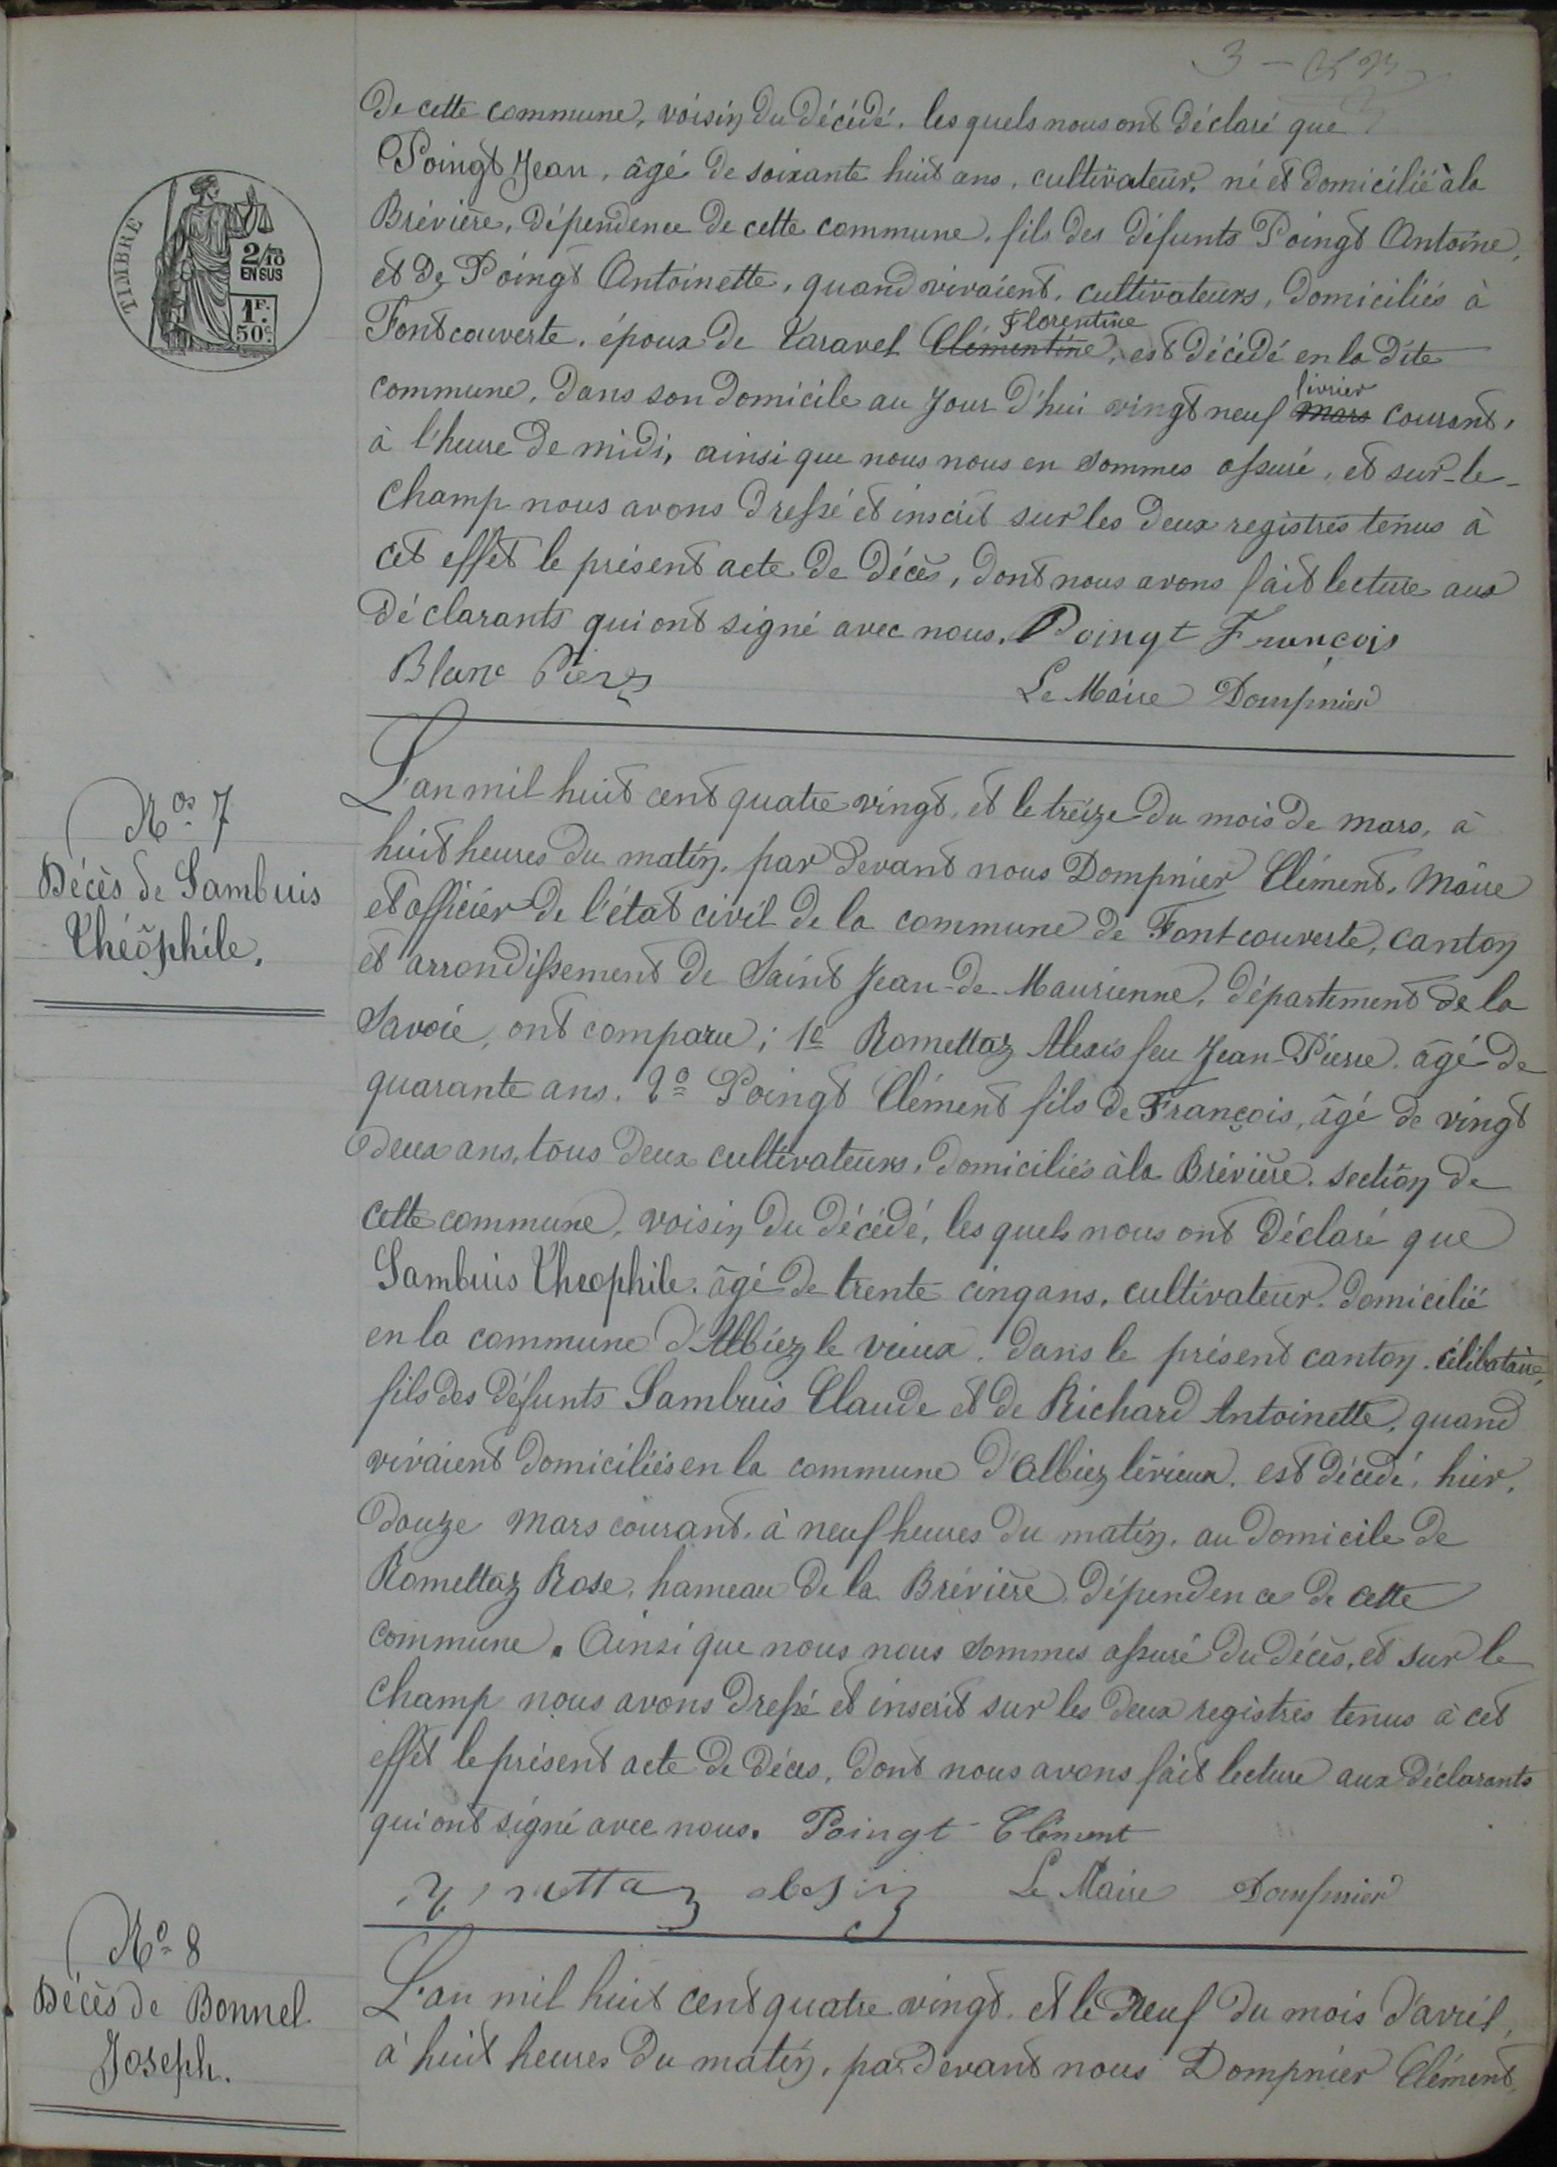 3 -
de cette commune, voisin du décédé, les quels nous ont déclaré que
Poingt Jean, âgé de soixante huit ans, cultivateur, né et domicilié à la
Brévière, dépendence de cette commune, fils des défunts Poingt Antoine,
et de Poingt Antoinette, quand vivaient, cultivateurs, domiciliés à
Florentine
Fontcouverte, époux de Taravel Clémentine, est décédé en la dite
février
commune, dans son domicile au jour d'hui vingt neuf mars courant,
à l'heure de midi, ainsi que nous nous en sommes assuré, et sur-le-
champ nous avons dressé et inscrit sur les deux registres tenus à
cet effet le présent acte de décès, dont nous avons fait lecture aux
déclarants qui ont signé avec nous. Poingt François
Blanc
Le Maire Dompnier
TIMBRE
2/10
EN SUS
1F.
50c.
Nos 7
Décès de Sambuis
Théophile.
L'an mil huit cent quatre vingt, et le treize du mois de mars, à
huit heures du matin, par devant nous Dompnier Clément, Maire
et officier de l'état civil de la commune de Fontcouverte, canton
et arrondissement de Saint Jean-de-Maurienne, département de la
Savoie, ont comparu; 1e Romettaz Alexis feu Jean-Pierre âgé de
quarante ans. 2o Poingt Clément fils de François, âgé de vingt
deux ans, tous deux cultivateurs, domiciliés à la Brévière, section de
cette commune, voisin du décédé, les quels nous ont déclaré que
Sambuis Theophile, âgé de trente cinq ans, cultivateur, domicilié
en la commune d'Albiez le vieux, dans le présent canton, célibataire,
fils des défunts Sambuis Claude et de Richard Antoinette, quand
vivaient domiciliés en la commune d'Albiez le vieux, est décédé, hier,
douze mars courant, à neuf heures du matin, au domicile de
Romettaz Rose, hameau de la Brévière, dépendence de cette
commune. Ainsi que nous nous sommes assuré du décès, et sur le
champ nous avons dressé et inscrit sur les deux registres tenus à cet
effet le présent acte de décès, dont nous avons fait lecture aux déclarants
qui ont signé avec nous. Poingt Clément
Le Maire Dompnier
No 8
Décès de Bonnel
Joseph.
L'an mil huit cent quatre vingt, et le neuf du mois d'avril,
à huit heures du matin, par devant nous Dompnier Clément,